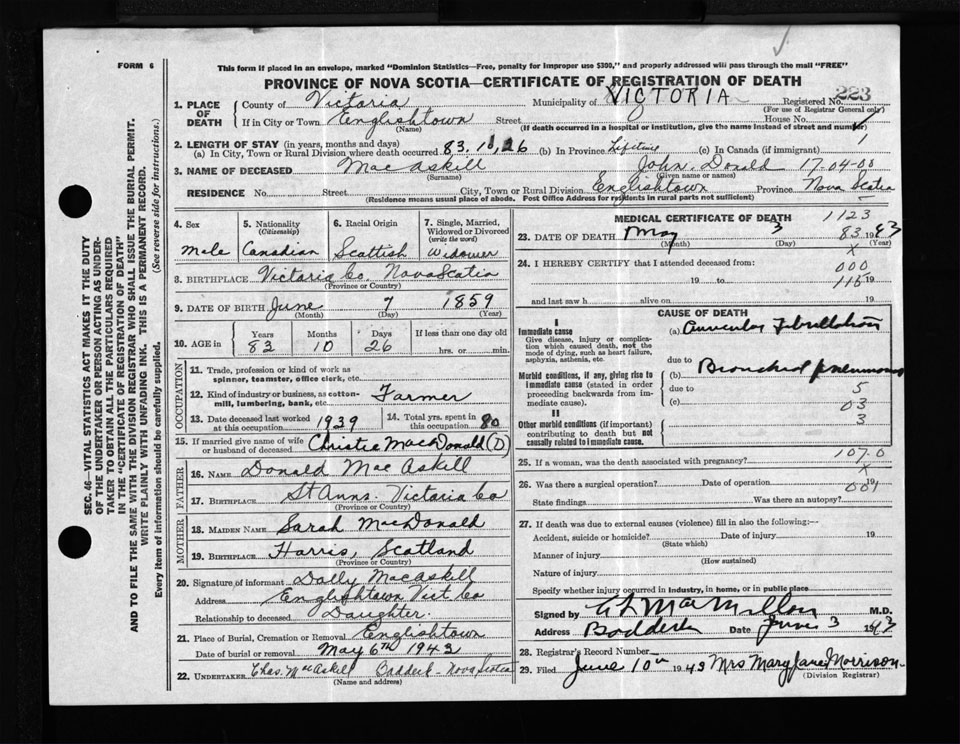 FORM 6
This form if placed in an envelope, marked "Dominion Statistics—Free, penalty for improper use $300," and properly addressed will pass through the mail "FREE"
PROVINCE OF NOVA SCOTIA—CERTIFICATE OF REGISTRATION OF DEATH
223
1. PLACE OF DEATH
County of Victoria Municipality of VICTORIA Registered No.
(For use of Registrar General only)
If in City or Town Englishtown Street House No.
(Name) (If death occurred in a hospital or institution, give the name instead of street and number)
2. LENGTH OF STAY (in years, months and days)
(a) In City, Town or Rural Division where death occurred 83.10,26 (b) In Province Lifetime (c) In Canada (if immigrant) 1
3. NAME OF DECEASED MacAskill John Donald 17-04-00
(Surname) (Given name or names)
RESIDENCE No. Street City, Town or Rural Division Englishtown Province Nova Scotia
(Residence means usual place of abode. Post Office Address for residents in rural parts not sufficient)
4. Sex
5. Nationality (Citizenship)
6. Racial Origin
7. Single, Married, Widowed or Divorced (write the word)
Male Canadian Scottish Widower
8. BIRTHPLACE Victoria Co. Nova Scotia
(Province or Country)
9. DATE OF BIRTH June 7 1859
(Month) (Day) (Year)
10. AGE in
Years Months Days If less than one day old
83 10 26 hrs. or min.
OCCUPATION
11. Trade, profession or kind of work as spinner, teamster, office clerk, etc.
12. Kind of industry or business, as cotton-mill, lumbering, bank, etc. Farmer
13. Date deceased last worked at this occupation 1939
14. Total yrs. spent in this occupation 80
15. If married give name of wife or husband of deceased Christie MacDonald (D)
FATHER
16. NAME Donald MacAskill
17. BIRTHPLACE St Anns. Victoria Co
(Province or Country)
MOTHER
18. MAIDEN NAME Sarah MacDonald
19. BIRTHPLACE Harris, Scotland
(Province or Country)
20. Signature of informant Dolly Macaskill
Address Englishtown Vict. Co
Relationship to deceased Daughter.
21. Place of Burial, Cremation or Removal Englishtown
Date of burial or removal May 6TH 1943
22. UNDERTAKER Chas. MacAskill Baddeck - Nova Scotia
(Name and address)
MEDICAL CERTIFICATE OF DEATH 1123
23. DATE OF DEATH May 3 83 1943
(Month) (Day) (Year)
x
24. I HEREBY CERTIFY that I attended deceased from: 000
19 to 115 19
and last saw h alive on 19
CAUSE OF DEATH
I
Immediate cause (a) Auricular Fibrillation
Give disease, injury or complication which caused death, not the mode of dying, such as heart failure, asphyxia, asthenia, etc.
due to
Morbid conditions, if any, giving rise to immediate cause (stated in order proceeding backwards from immediate cause).
(b) Bronchial pneumonia
due to 5
(c) 03
II
3
Other morbid conditions (if important) contributing to death but not causally related to immediate cause.
107.0
25. If a woman, was the death associated with pregnancy?
x
26. Was there a surgical operation? Date of operation 19
001
State findings Was there an autopsy?
27. If death was due to external causes (violence) fill in also the following:—
Accident, suicide or homicide? Date of injury 19
(State which)
Manner of injury
(How sustained)
Nature of injury
Specify whether injury occurred in industry, in home, or in public place
Signed by MacMillan M.D.
Address Baddeck Date June 3 1943
28. Registrar's Record Number
29. Filed June 10th 1943 Mrs Mary Jane Morrison
(Division Registrar)
SEC. 46—VITAL STATISTICS ACT MAKES IT THE DUTY
OF THE UNDERTAKER OR PERSON ACTING AS UNDER-
TAKER TO OBTAIN ALL THE PARTICULARS REQUIRED
IN THE "CERTIFICATE OF DEATH"
AND TO FILE THE SAME WITH THE DIVISION REGISTRAR WHO SHALL ISSUE THE BURIAL PERMIT.
WRITE PLAINLY WITH UNFADING INK. THIS IS A PERMANENT RECORD.
Every item of information should be carefully supplied. (See reverse side for instructions.)